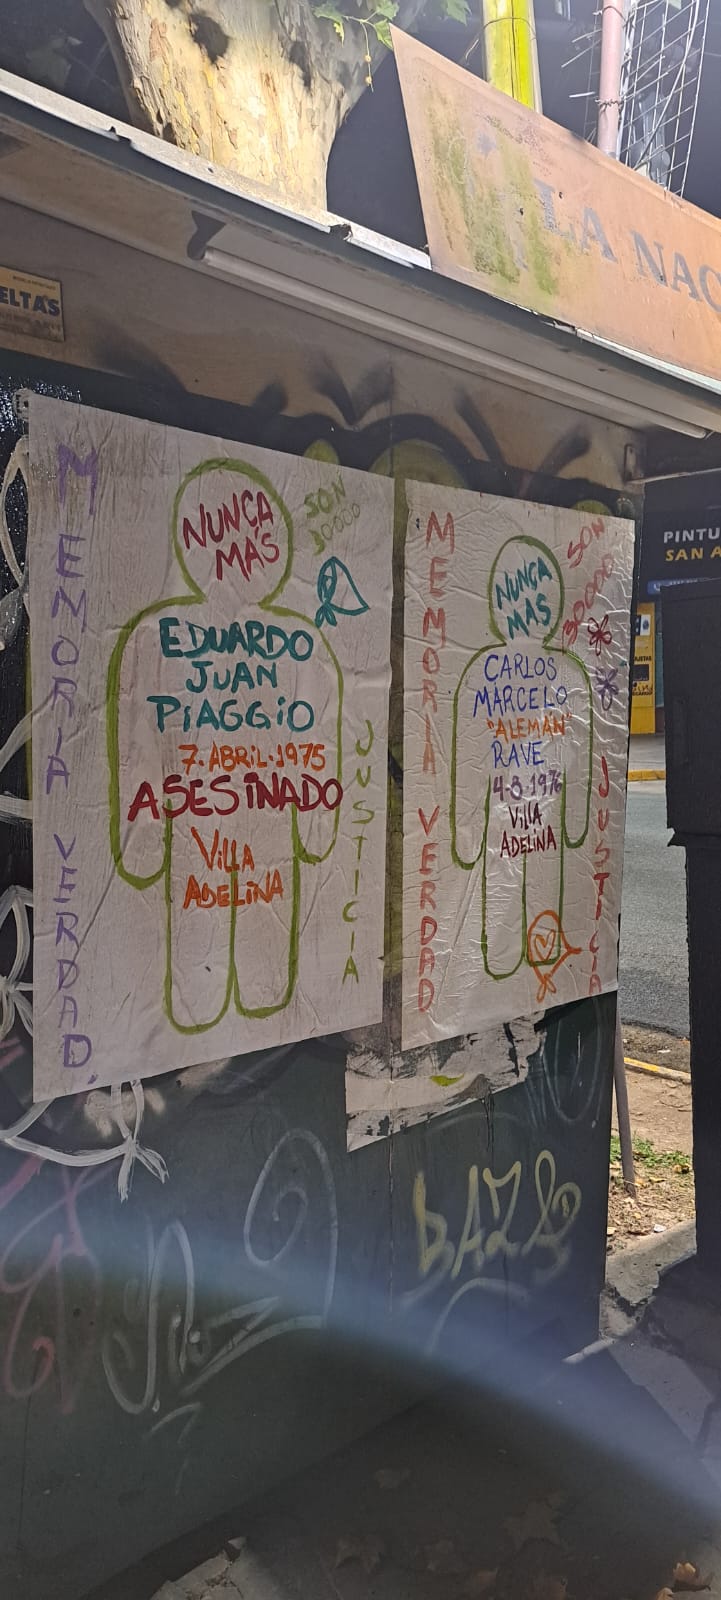 LA NAC
ELTAS
MEMORIA VERDAD.
NUNCA
MÁS
SON
30000
EDUARDO
JUAN
PIAGGIO
7.ABRIL.1975
ASESINADO
VILLA
ADELINA
JUSTICIA
MEMORIA VERDAD
NUNCA
MAS
SON
30000
CARLOS
MARCELO
"ALEMÁN"
RAVE
4-8-1976
VILLA
ADELINA
JUSTICIA
PINTU
SAN A